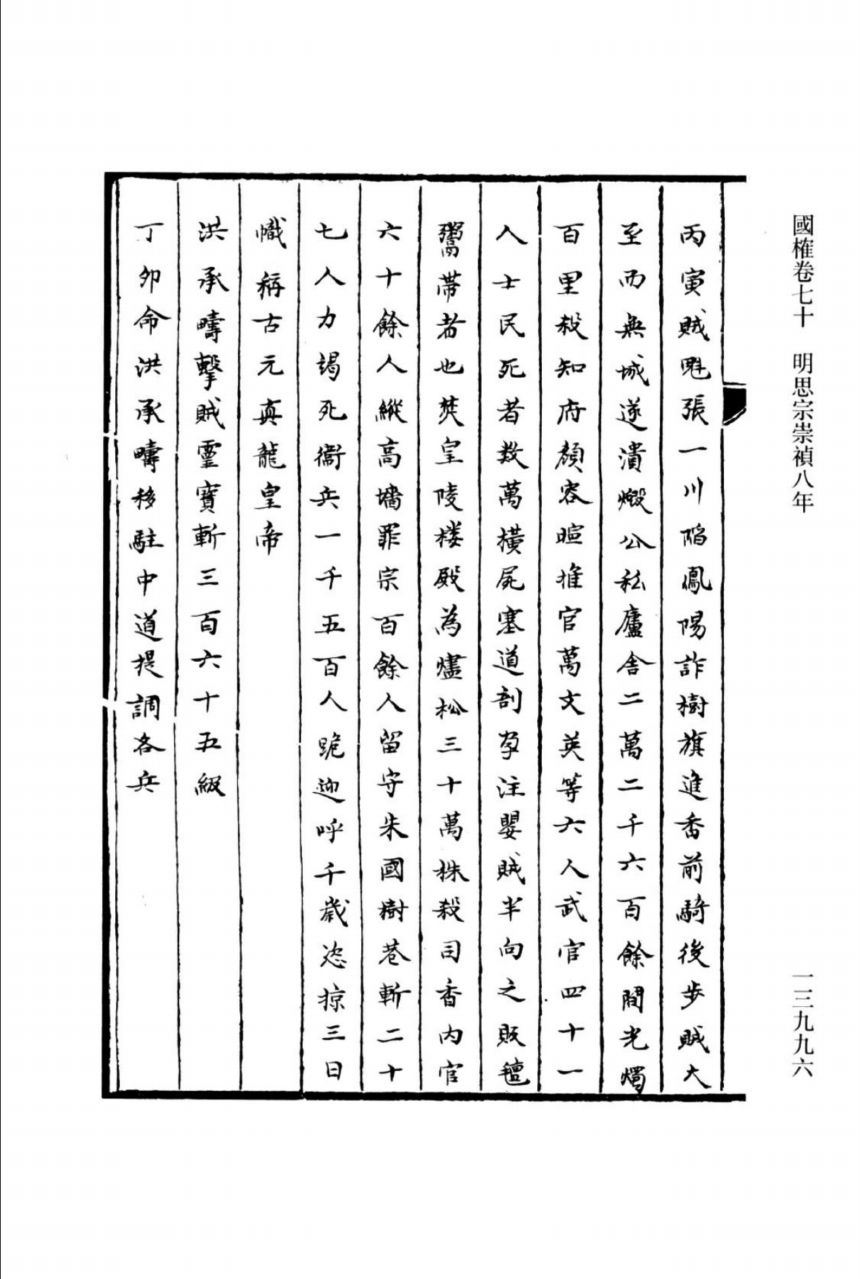 國榷卷七十　明思宗崇禎八年
一三九九六
丙寅賊魁張一川陷鳳陽詐樹旗進香前騎後步賊大
至而無城遂潰燬公私廬舍二萬二千六百餘間光燭
百里殺知府顏容暄推官萬文英等六人武官四十一
人士民死者数萬橫屍塞道剖孕注嬰賊半向之販氊
鬻帶者也焚皇陵楼殿為燼松三十萬株殺司香內官
六十餘人縱高墻罪宗百餘人留守朱國樹巷斬二十
七人力竭死衞兵一千五百人跪迎呼千歲恣掠三日
幟稱古元真龍皇帝
洪承疇擊賊靈寳斬三百六十五級
丁夘命洪承疇移駐中道提調各兵